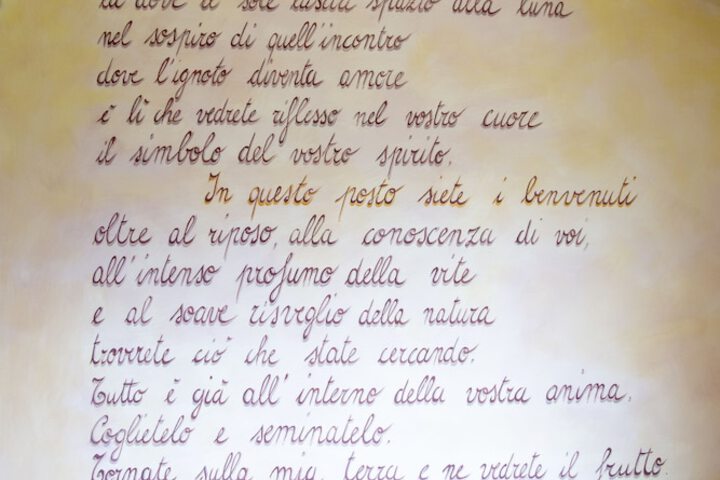 là dove il sole lascia spazio alla luna
nel sospiro di quell'incontro
dove l'ignoto diventa amore
è lì che vedrete riflesso nel vostro cuore
il simbolo del vostro spirito.
In questo posto siete i benvenuti
oltre al riposo, alla conoscenza di voi,
all'intenso profumo della vite
e al soave risveglio della natura
troverete ciò che state cercando.
Tutto è già all'interno della vostra anima.
Coglietelo e seminatelo.
Tornate sulla mia terra e ne vedrete il frutto.